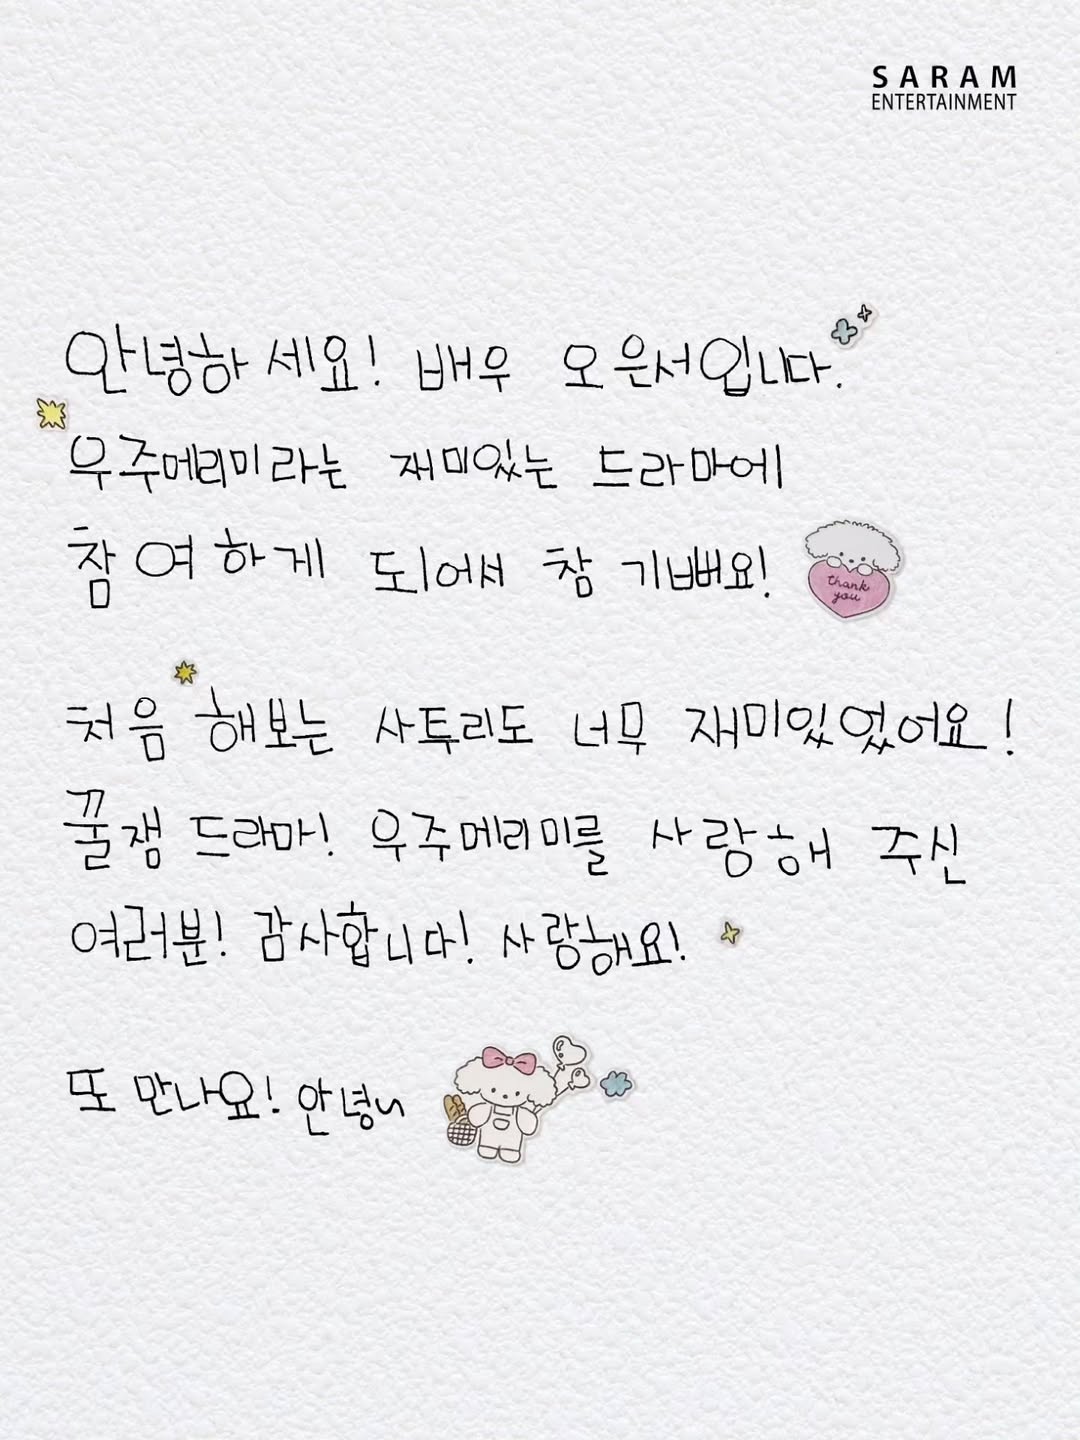 SARAM
ENTERTAINMENT
안녕하세요! 배우 오은서입니다.
우주메리미라는 재미있는 드라마에
참여하게 되어서 참 기뻐요!
thank
you
처음 해보는 사투리도 너무 재미있었어요!
꿀잼 드라마! 우주메리미를 사랑해 주신
여러분! 감사합니다! 사랑해요!
또 만나요! 안녕~